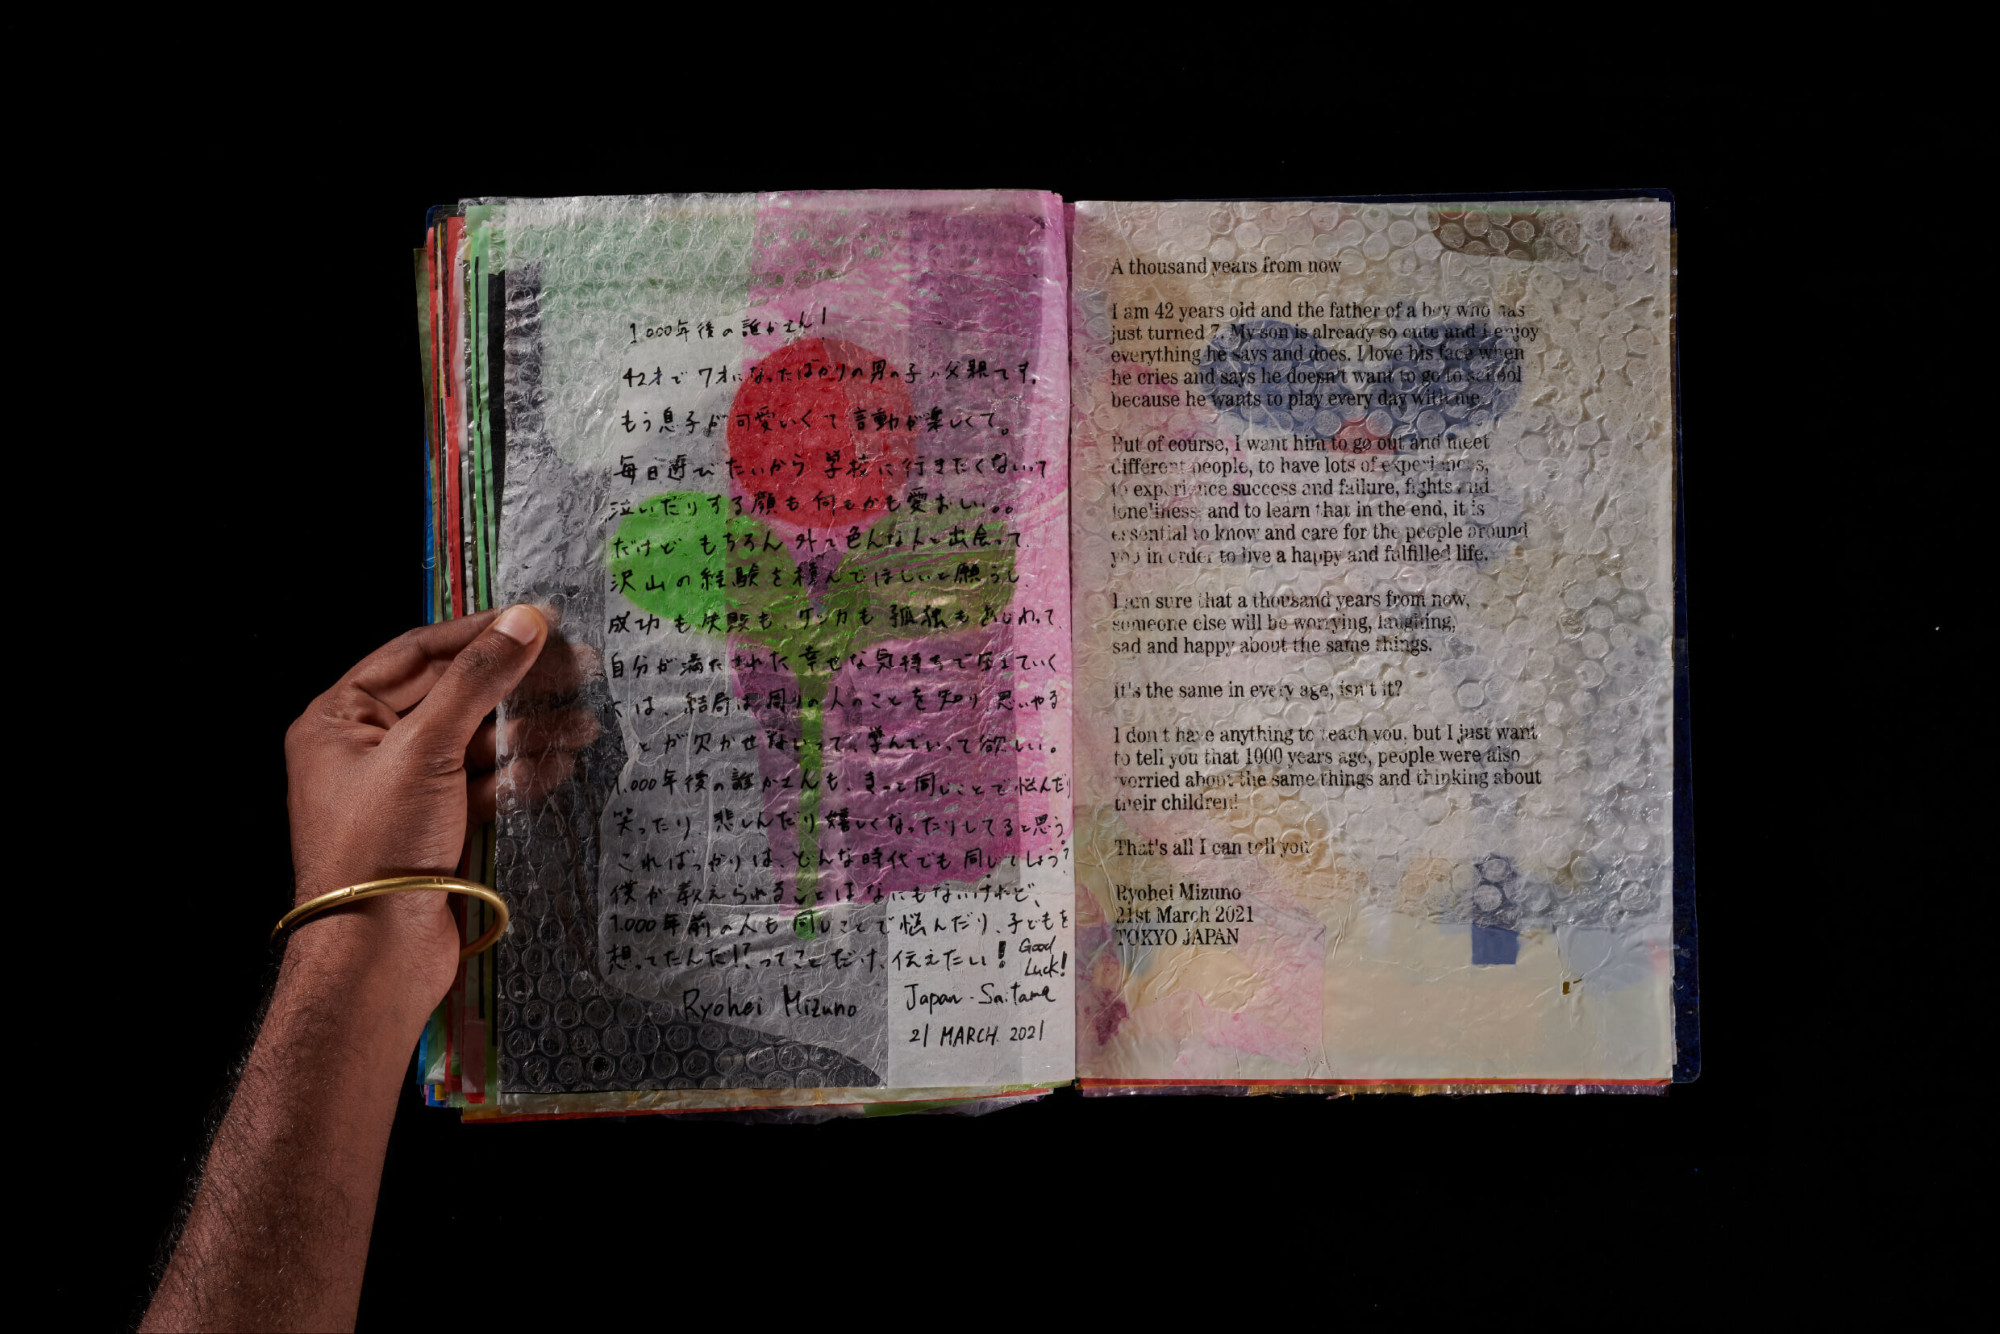 1,000年後の誰かさん!
42才で7才になったばかりの男の子の父親です。
もう息子が可愛いくて言動が楽しくて。
毎日遊びたいから学校に行きたくないって
泣いたりする顔も何もかも愛おしい。。
だけどもちろん外で色んな人と出会って、
沢山の経験を積んでほしいと願うし、
成功も失敗も、ケンカも孤独もあじわって、
自分が満たされた幸せな気持ちで生きていく
には、結局は周りの人のことを知り、思いやる
とが欠かせないって、学んでいって欲しい。
1,000年後の誰かさんも、きっと同じことで悩んだり
笑ったり、悲しんだり嬉しくなったりしてると思う
こればっかりは、どんな時代でも同じでしょう?
僕が教えられることはなにもないけれど、
1,000年前の人も同じことで悩んだり、子どもを
想ってたんだ!?ってことだけ、伝えたい! Good
Luck!
Ryohei Mizuno
Japan. Saitama
21 MARCH. 2021
A thousand years from now
I am 42 years old and the father of a boy who has
just turned 7. My son is already so cute and I enjoy
everything he says and does. I love his face when
he cries and says he doesn't want to go to school
because he wants to play every day with me.
But of course, I want him to go out and meet
different people, to have lots of experiences,
to experience success and failure, fights and
loneliness, and to learn that in the end, it is
essential to know and care for the people around
you in order to live a happy and fulfilled life.
I am sure that a thousand years from now,
someone else will be worrying, laughing,
sad and happy about the same things.
It's the same in every age, isn't it?
I don't have anything to teach you, but I just want
to tell you that 1000 years ago, people were also
worried about the same things and thinking about
their children!
That's all I can tell you
Ryohei Mizuno
21st March 2021
TOKYO JAPAN